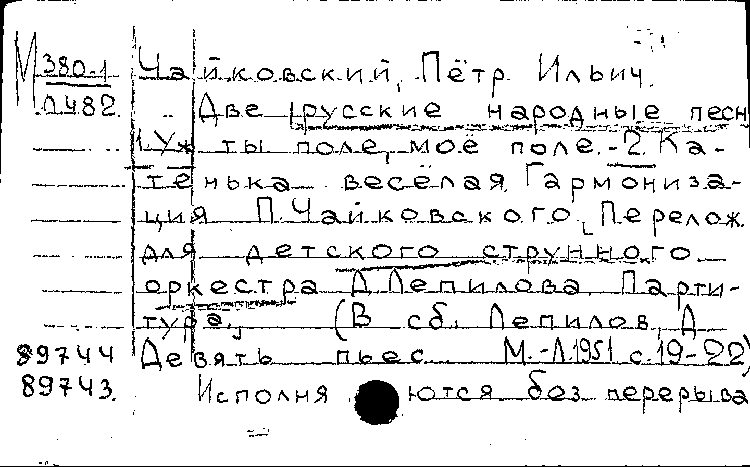 М 380-1 Чайковский, Пётр Ильич.
Л482. Две русские народные песн
1. Уж ты поле, мое поле.-2. Ка-
тенька весёлая. Гармониза-
ция П.Чайковского. Перелож.
для детского струнного
оркестра Д Лепилова. Парти-
тура. (В сб. Лепилов, Д
89744 Девять пьес М.-Л.1951 с.19-22)
89743. Исполняются без перерыва